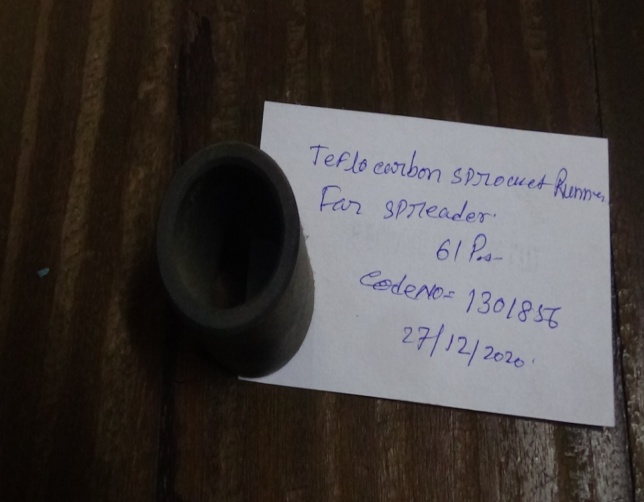 Teflo carbon sprocket Runner
For spreader.
61 Ps
Code No = 1301856
27/12/2020.